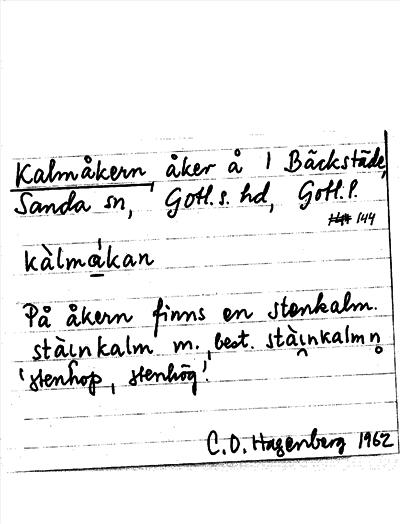 Kalmåkern, åker å 1 Bäckstäde,
Sanda sn, Gotl. s. hd, Gotl. l.
144
kàlmåkan
På åkern finns en stenkalm.
stàinkalm m., best. stàinkalmn̥
'stenhop, stenhög'.
C. O. Hagenberg 1962